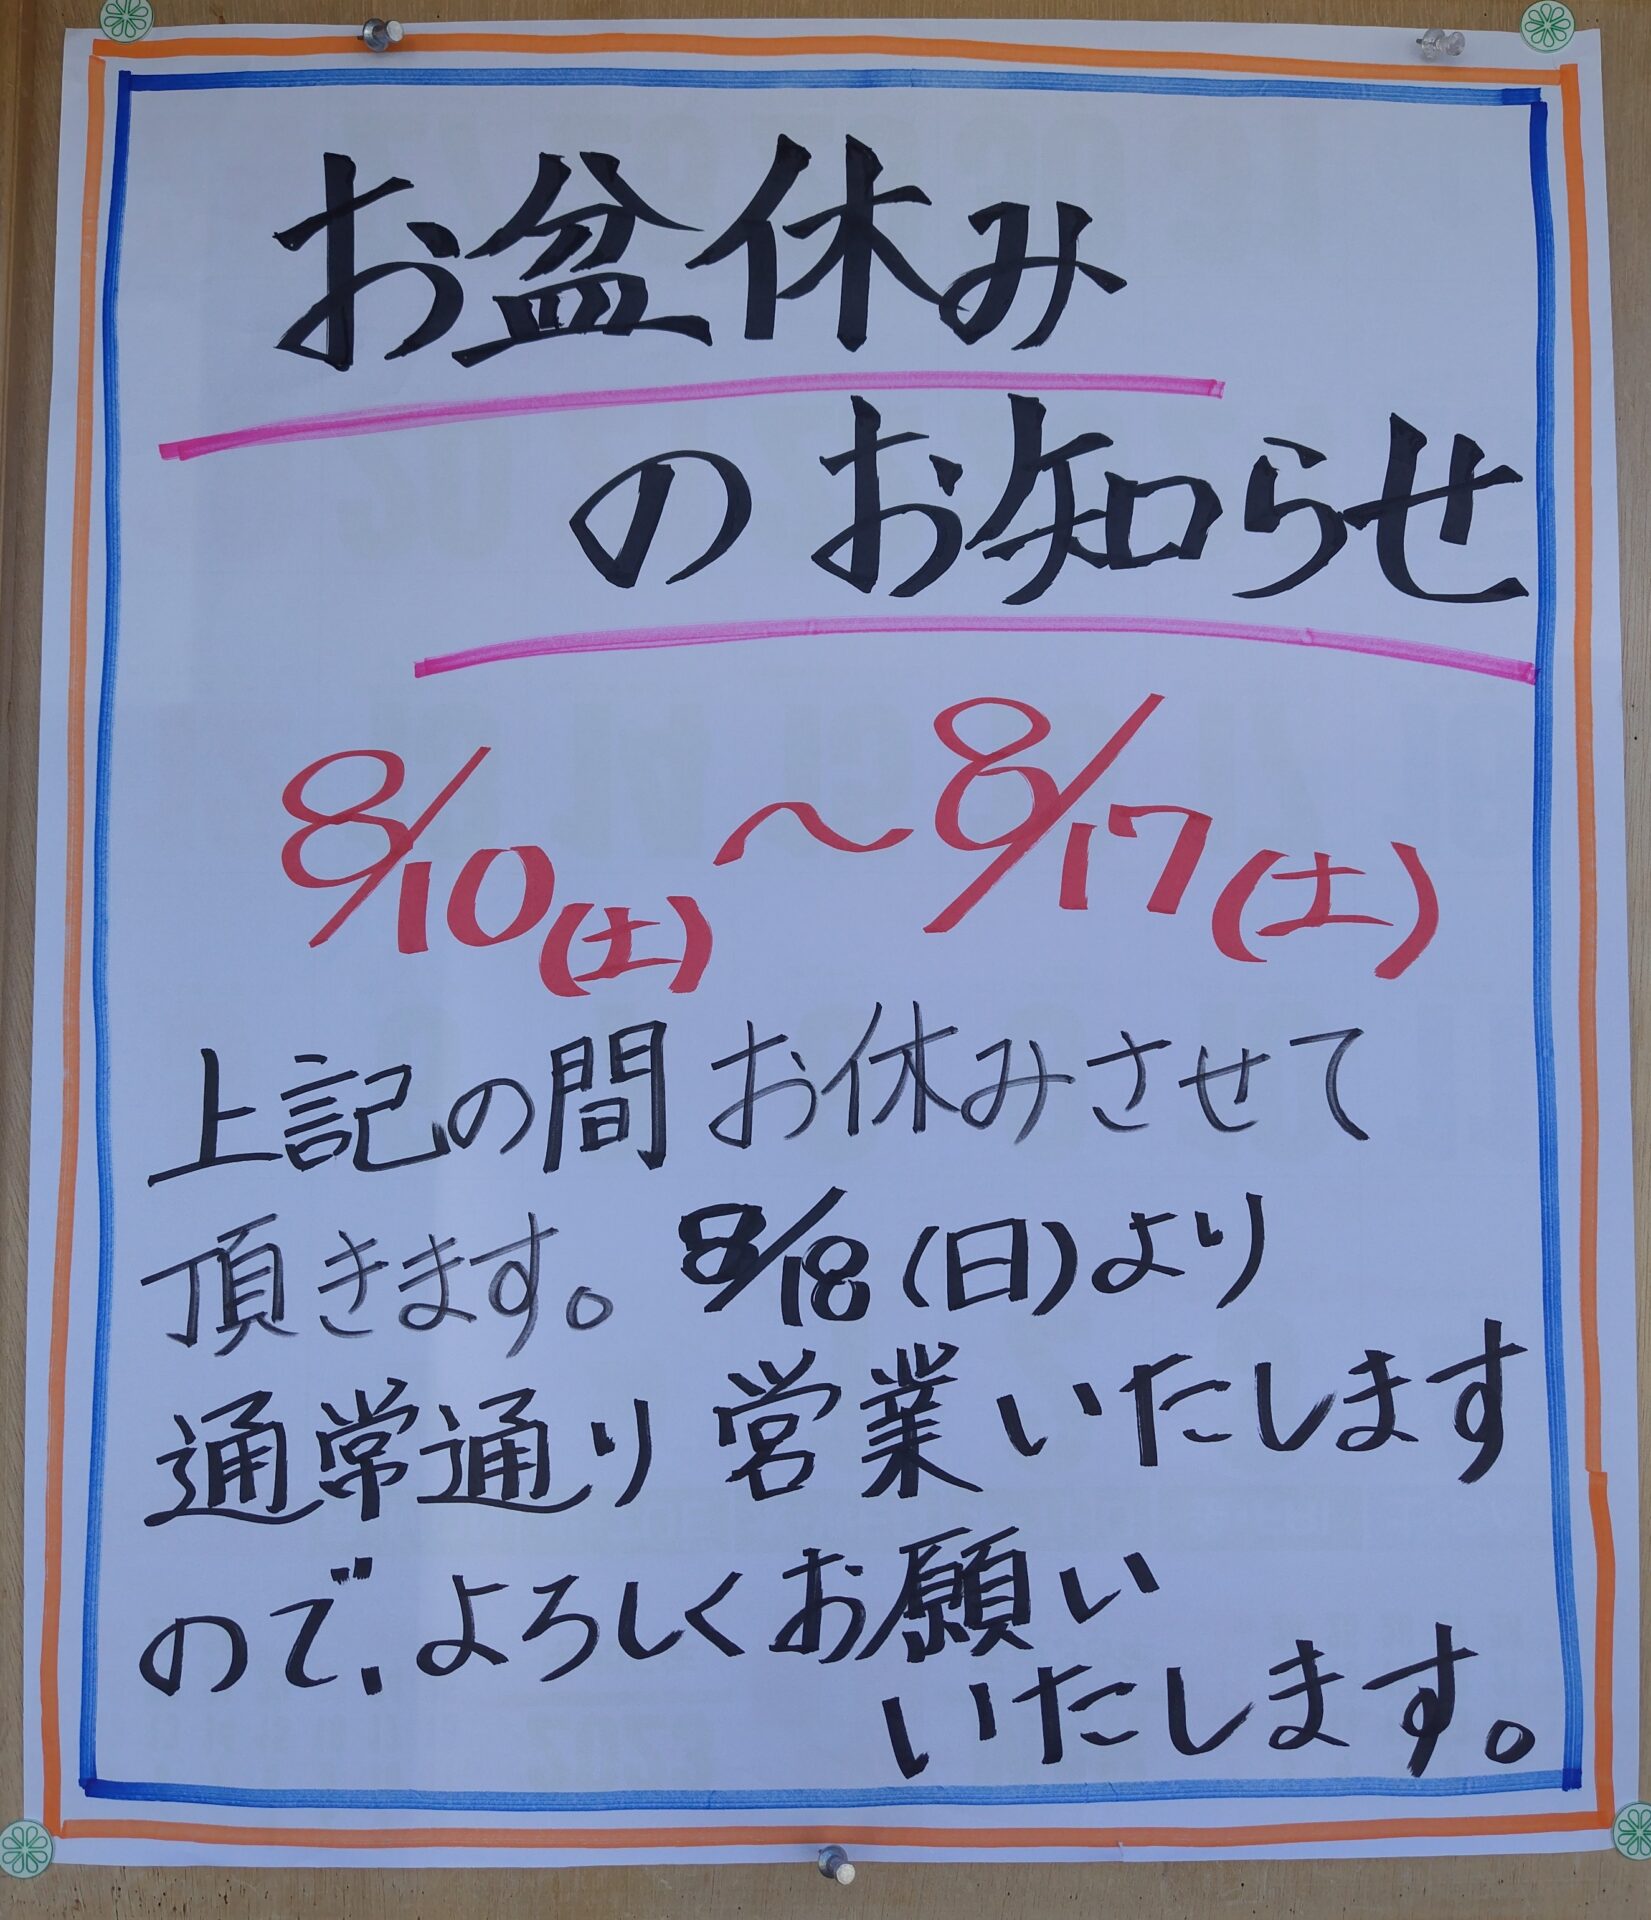 お盆休み
のお知らせ
8/10(土)～8/17(土)
上記の間お休みさせて
頂きます。8/18(日)より
通常通り営業いたします
ので、よろしくお願い
いたします。